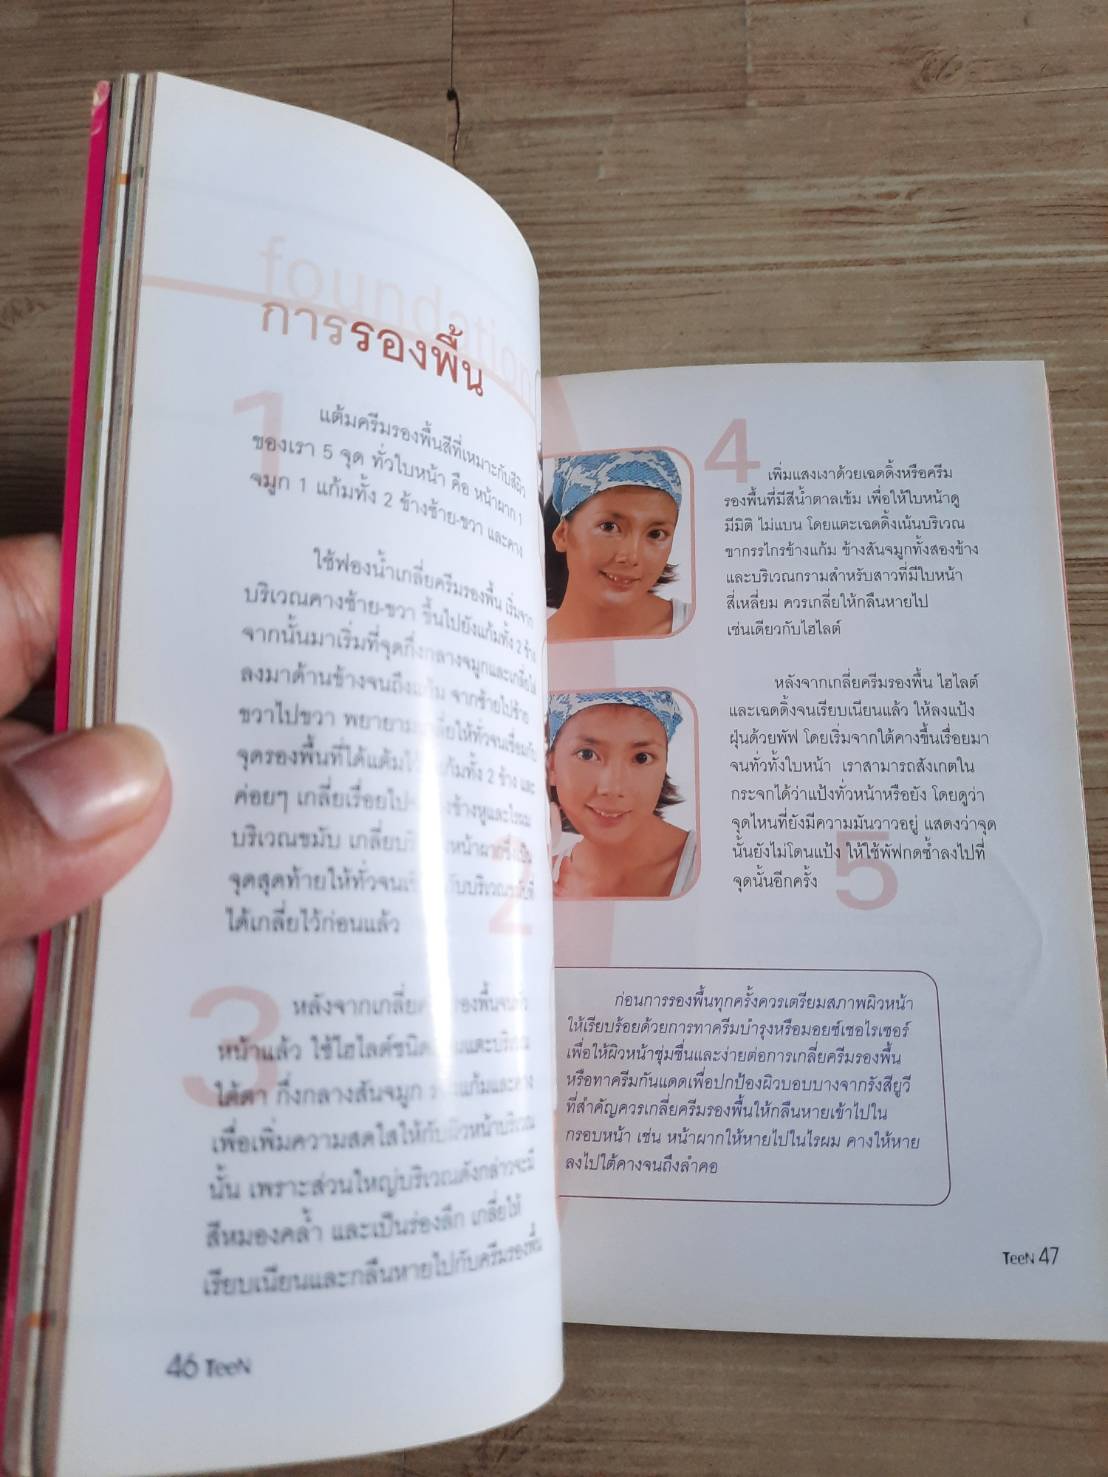 foundation
การรองพื้น
1
แต้มครีมรองพื้นสีที่เหมาะกับสีผิว
ของเรา 5 จุด ทั่วใบหน้า คือ หน้าผาก 1
จมูก 1 แก้มทั้ง 2 ข้างซ้าย-ขวา และคาง
ใช้ฟองน้ำเกลี่ยครีมรองพื้น เริ่มจาก
บริเวณคางซ้าย-ขวา ขึ้นไปยังแก้มทั้ง 2 ข้าง
จากนั้นมาเริ่มที่จุดกึ่งกลางจมูกและเกลี่ย
ลงมาด้านข้างจนถึงแก้ม จากซ้ายไปซ้าย
ขวาไปขวา พยายามเกลี่ยให้ทั่วจนเชื่อมกับ
จุดรองพื้นที่ได้แต้ม แก้มทั้ง 2 ข้าง และ
ค่อยๆ เกลี่ยเรื่อยไป ข้างหูและไรผม
บริเวณขมับ เกลี่ย หน้าผากซึ่งเป็น
จุดสุดท้ายให้ทั่วจน กับบริเวณ
ได้เกลี่ยไว้ก่อนแล้ว
2
3
หลังจากเกลี่ย รองพื้น
หน้าแล้ว ใช้ไฮไลต์ชนิด แตะบริเวณ
ใต้ตา กึ่งกลางสันจมูก แก้มและคาง
เพื่อเพิ่มความสดใสให้กับผิวหน้าบริเวณ
นั้น เพราะส่วนใหญ่บริเวณดังกล่าวจะมี
สีหมองคล้ำ และเป็นร่องลึก เกลี่ยให้
เรียบเนียนและกลืนหายไปกับครีมรองพื้น
46 TeeN
4
เพิ่มแสงเงาด้วยเฉดดิ้งหรือครีม
รองพื้นที่มีสีน้ำตาลเข้ม เพื่อให้ใบหน้าดู
มีมิติ ไม่แบน โดยแตะเฉดดิ้งเน้นบริเวณ
ขากรรไกรข้างแก้ม ข้างสันจมูกทั้งสองข้าง
และบริเวณกรามสำหรับสาวที่มีใบหน้า
สี่เหลี่ยม ควรเกลี่ยให้กลืนหายไป
เช่นเดียวกับไฮไลต์
หลังจากเกลี่ยครีมรองพื้น ไฮไลต์
และเฉดดิ้งจนเรียบเนียนแล้ว ให้ลงแป้ง
ฝุ่นด้วยพัฟ โดยเริ่มจากใต้คางขึ้นเรื่อยมา
จนทั่วทั้งใบหน้า เราสามารถสังเกตใน
กระจกได้ว่าแป้งทั่วหน้าหรือยัง โดยดูว่า
จุดไหนที่ยังมีความมันวาวอยู่ แสดงว่าจุด
นั้นยังไม่โดนแป้ง ให้ใช้พัฟกดซ้ำลงไปที่
จุดนั้นอีกครั้ง
5
ก่อนการรองพื้นทุกครั้งควรเตรียมสภาพผิวหน้า
ให้เรียบร้อยด้วยการทาครีมบำรุงหรือมอยซ์เซอไรเซอร์
เพื่อให้ผิวหน้าชุ่มชื่นและง่ายต่อการเกลี่ยครีมรองพื้น
หรือทาครีมกันแดดเพื่อปกป้องผิวบอบบางจากรังสียูวี
ที่สำคัญควรเกลี่ยครีมรองพื้นให้กลืนหายเข้าไปใน
กรอบหน้า เช่น หน้าผากให้หายไปในไรผม คางให้หาย
ลงไปใต้คางจนถึงลำคอ
TeeN 47